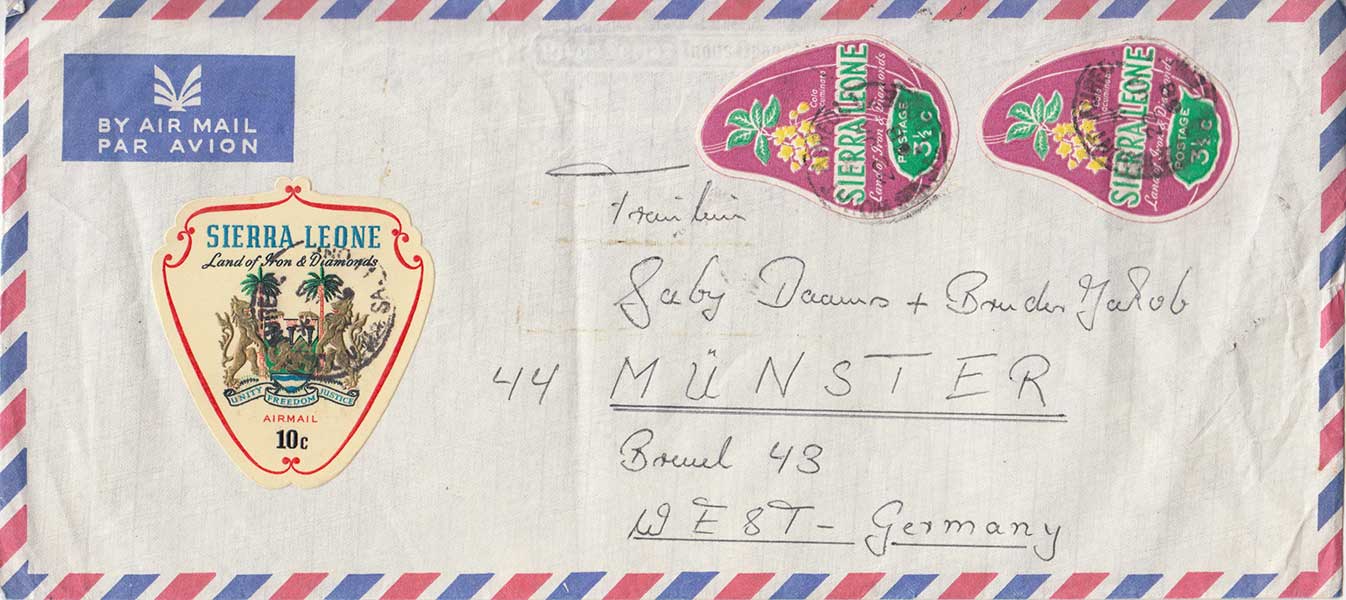 BY AIR MAIL
PAR AVION
SIERRA LEONE
Land of Iron & Diamonds
UNITY FREEDOM JUSTICE
AIRMAIL
10c
Cola
acuminata
SIERRA LEONE
Land of Iron & Diamonds
POSTAGE
3½ c
Cola
SIERRA LEONE
Land of Iron & Diamonds
POSTAGE
3½ c
Fräulein
Gaby Daams + Bruder Jakob
44 MÜNSTER
Breul 43
WEST-Germany